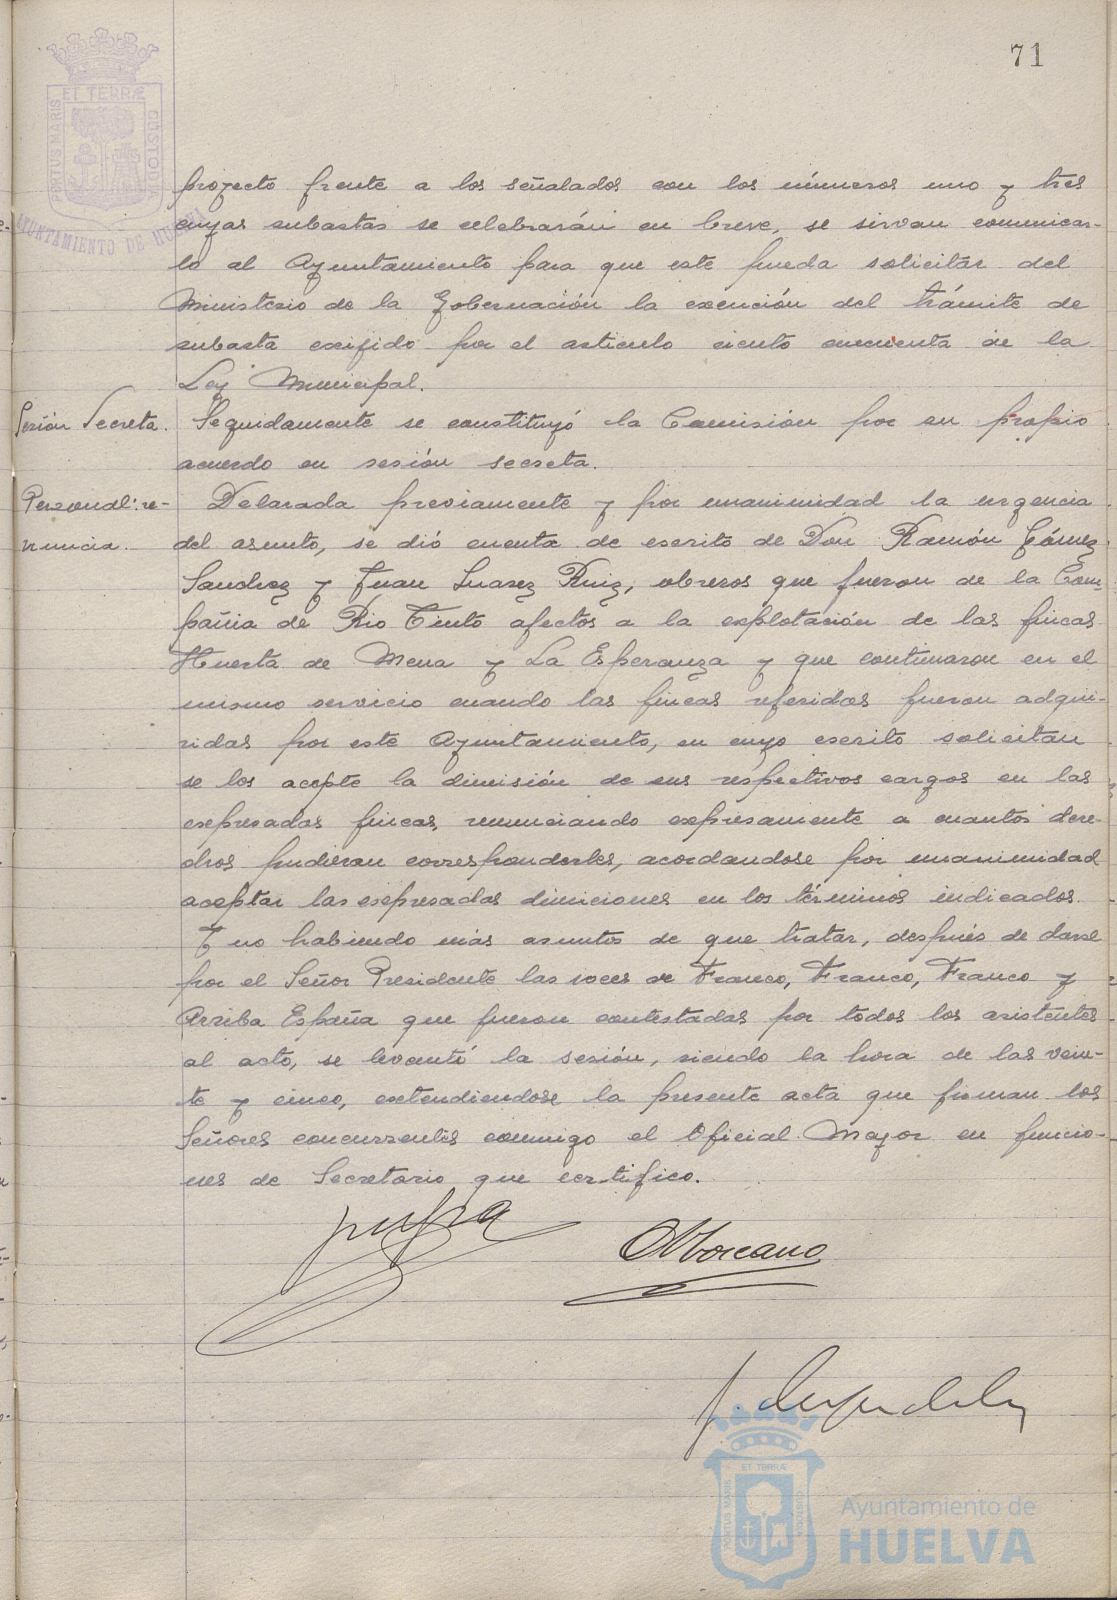 71
PORTUS MARIS ET TERRÆ CUSTODIA
AYUNTAMIENTO DE HUELVA
proyecto frente a los señalados con los números uno y tres
cuyas subastas se celebrarán en breve, se sirvan comunicar-
lo al Ayuntamiento para que este pueda solicitar del
Ministerio de la Gobernación la exención del trámite de
subasta exigido por el artículo ciento cincuenta de la
Ley Municipal.
Sesión Secreta. Seguidamente se constituyó la Comisión por su propio
acuerdo en sesión secreta.
Personal: re-
nuncia.
Delarada previamente y por unanimidad la urgencia
del asunto, se dió cuenta de escrito de Don Ramón Gómez
Sanchez y Juan Suarez Ruiz, obreros que fueron de la Com-
pañia de Rio Tinto afectos a la explotación de las fincas
Huerta de Mena y La Esperanza y que continuaron en el
mismo servicio cuando las fincas referidas fueron adqui-
ridas por este Ayuntamiento, en cuyo escrito solicitan
se les acepte la dimisión de sus respectivos cargos en las
expresadas fincas, renunciando expresamente a cuantos dere-
chos pudieran corresponderles, acordandose por unanimidad
aceptar las expresadas dimiciones en los términos indicados.
Y no habiendo más asuntos de que tratar, después de darse
por el Señor Presidente las voces de Franco, Franco, Franco y
Arriba España que fueron contestadas por todos los asistentes
al acto, se levantó la sesión, siendo la hora de las vein-
te y cinco, extendiendose la presente acta que firman los
Señores concurrentes conmigo el Oficial Mayor en funcio-
nes de Secretario que certifico.
PORTUS MARIS ET TERRÆ CUSTODIA
Ayuntamiento de
HUELVA